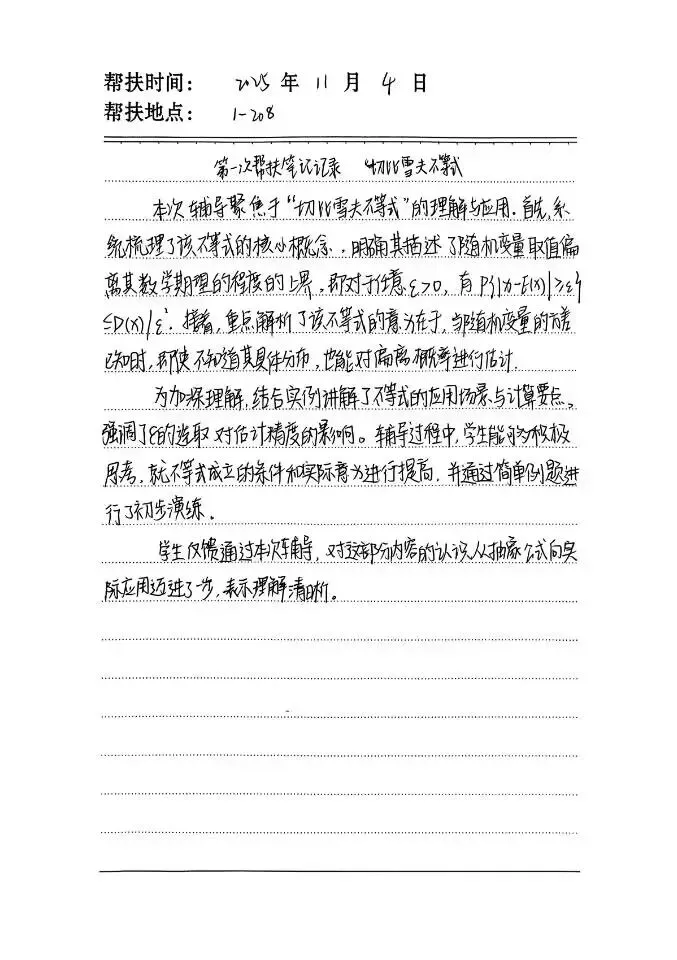 帮扶时间： 2025 年 11 月 4 日
帮扶地点： 1-208
第一次帮扶笔记记录 切比雪夫不等式
本次辅导聚焦于“切比雪夫不等式”的理解与应用. 首先, 系
统梳理了该不等式的核心概念. , 明确其描述了随机变量取值偏
离其数学期望的程度的上界。即对于任意 ε>0, 有 P{|x-E(x)|≥ε}
≤D(X)/ε². 接着, 重点解析了该不等式的意义在于, 当随机变量的方差
已知时, 即使不知道其具体分布, 也能对偏离概率进行估计.
为加深理解, 结合实例讲解了不等式的应用场景与计算要点。
强调了ε的选取对估计精度的影响。辅导过程中, 学生能够积极
思考, 就不等式成立的条件和实际意义进行提问, 并通过简单例题进
行了初步演练。
学生反馈通过本次辅导, 对这部分内容的认识从抽象公式向实
际应用迈进了一步, 表示理解清晰。